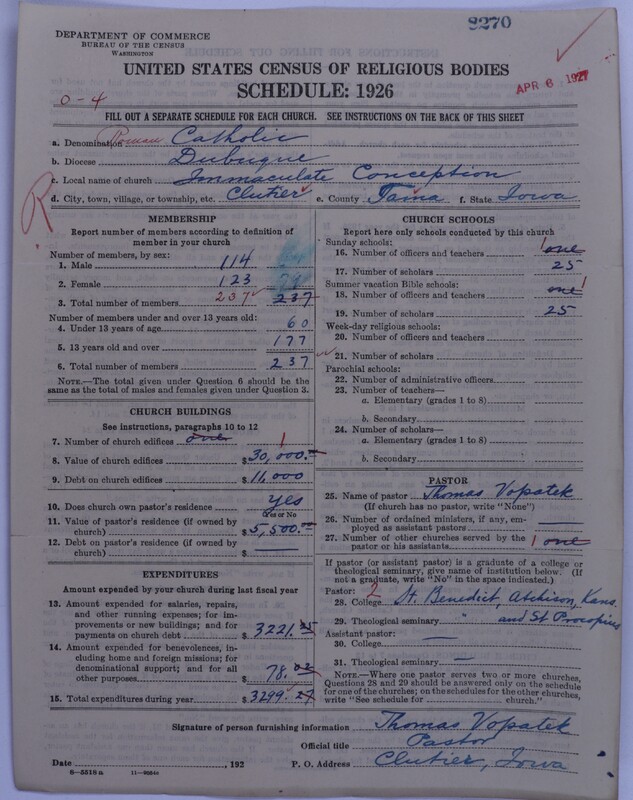 8270
DEPARTMENT OF COMMERCE
BUREAU OF THE CENSUS
WASHINGTON
APR 6 1927
UNITED STATES CENSUS OF RELIGIOUS BODIES
SCHEDULE: 1926
0-4
FILL OUT A SEPARATE SCHEDULE FOR EACH CHURCH. SEE INSTRUCTIONS ON THE BACK OF THIS SHEET
a. Denomination Roman Catholic
b. Diocese Dubuque
c. Local name of church Immaculate Conception
d. City, town, village, or township, etc. Clutier e. County Tama f. State Iowa
R
MEMBERSHIP
Report number of members according to definition of
member in your church
Number of members, by sex:
1. Male 114
2. Female 123
3. Total number of members 237 237
Number of members under and over 13 years old:
4. Under 13 years of age 60
5. 13 years old and over 177
6. Total number of members 237
NOTE.—The total given under Question 6 should be
the same as the total of males and females given under Question 3.
CHURCH BUILDINGS
See instructions, paragraphs 10 to 12
7. Number of church edifices one 1
8. Value of church edifices $ 30,000.00
9. Debt on church edifices $ 11,000
10. Does church own pastor's residence yes
Yes or No
11. Value of pastor's residence (if owned by
church) $ 5,500.00
12. Debt on pastor's residence (if owned by
church) $ —
EXPENDITURES
Amount expended by your church during last fiscal year
13. Amount expended for salaries, repairs,
and other running expenses; for im-
provements or new buildings; and for
payments on church debt $ 3221.25
14. Amount expended for benevolences, in-
cluding home and foreign missions; for
denominational support; and for all
other purposes $ 78.02
15. Total expenditures during year $ 3299.27
CHURCH SCHOOLS
Report here only schools conducted by this church
Sunday schools:
16. Number of officers and teachers 1 one
17. Number of scholars 25
Summer vacation Bible schools:
18. Number of officers and teachers one 1
19. Number of scholars 25
Week-day religious schools:
20. Number of officers and teachers
21. Number of scholars
Parochial schools:
22. Number of administrative officers
23. Number of teachers—
a. Elementary (grades 1 to 8)
b. Secondary
24. Number of scholars—
a. Elementary (grades 1 to 8)
b. Secondary
PASTOR
25. Name of pastor Thomas Vopatek
(If church has no pastor, write "None")
26. Number of ordained ministers, if any, em-
ployed as assistant pastors
27. Number of other churches served by the
pastor or his assistants 1 one
If pastor (or assistant pastor) is a graduate of a college or
theological seminary, give name of institution below. (If
not a graduate, write "No" in the space indicated.)
Pastor: 2
28. College St. Benedict, Atchison, Kans.
29. Theological seminary " and St Procopius
Assistant pastor:
30. College —
31. Theological seminary —
NOTE.—Where one pastor serves two or more churches,
Questions 28 and 29 should be answered only on the schedule
for one of the churches; on the schedules for the other churches,
write "See schedule for church."
Signature of person furnishing information Thomas Vopatek
Official title Pastor
Date , 192 P. O. Address Clutier, Iowa
8—5516 a